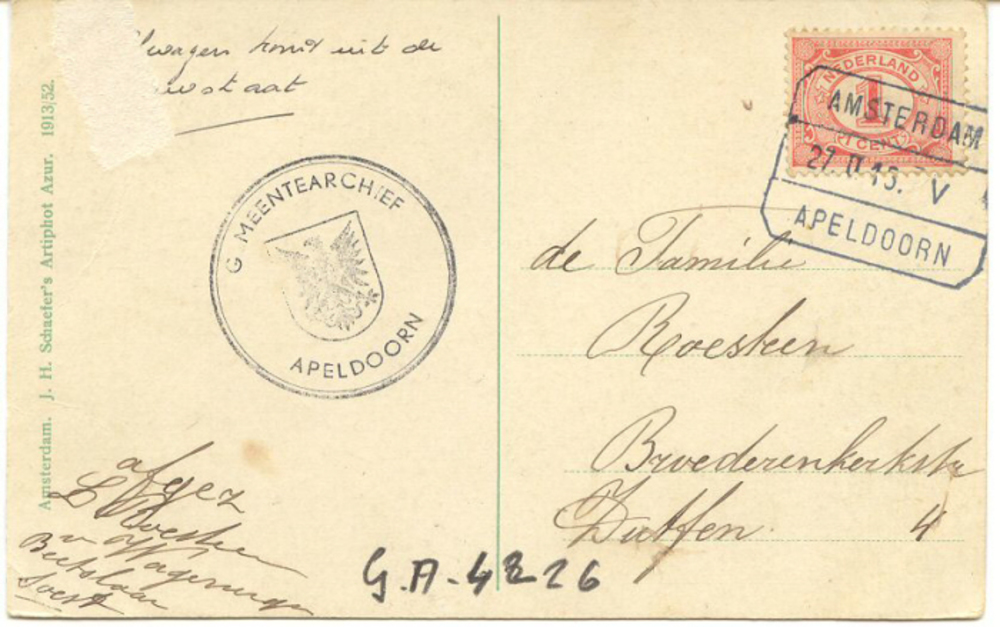 wagen komt uit de
wstaat
Amsterdam. J. H. Schaefer's Artiphot Azur. 1913/52.
G MEENTEARCHIEF
APELDOORN
NEDERLAND
1
1 CENT
AMSTERDAM
27. 0.15. V
APELDOORN
de Familie
Roesteen
Broederenkerkstr
Zutfen 4
afgez
L Roesteen
v Wageningen
Soest
G.A-4226